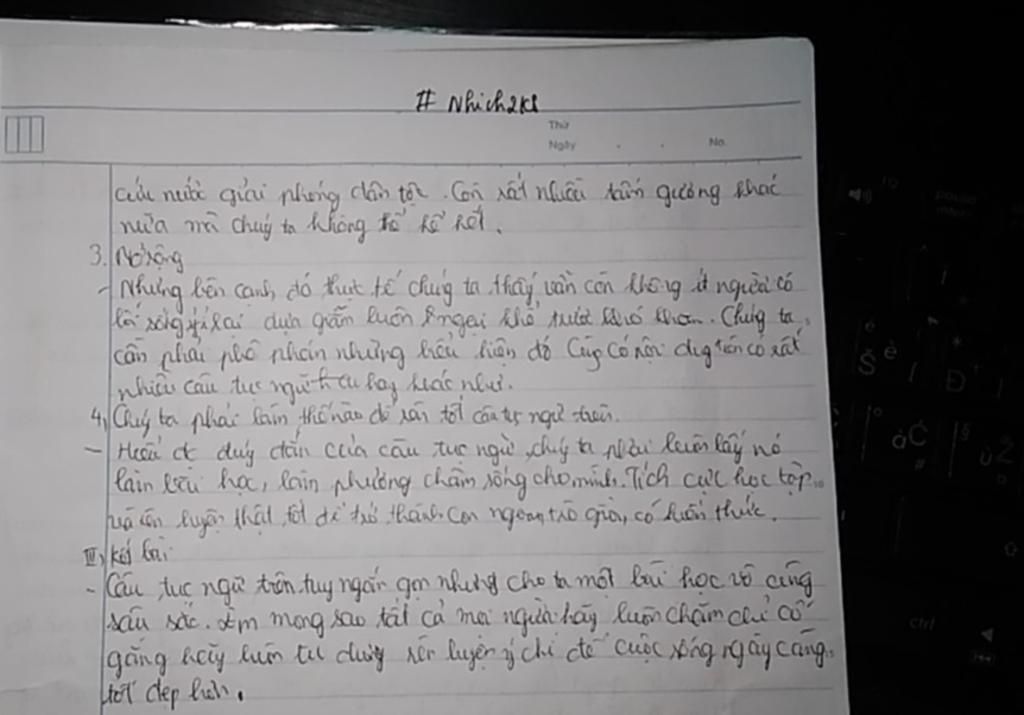 # Nhich2k8
Thứ
Ngày . . No.
cứu nước giải phóng dân tộc. Còn rất nhiều tấm gương khác
nữa mà chúng ta không thể kể hết.
3. Mở rộng
- Nhưng bên cạnh đó thực tế chúng ta thấy vẫn còn không ít người có
lối sống ỷ lại dựa giẫm luôn ngại khổ khó khăn. Chúng ta
cần phải phê phán những biểu hiện đó có rất
nhiều câu tục ngữ hay khác như.
4, Chúng ta phải làm thế nào để tốt câu tục ngữ trên.
- Hiểu đc đúng đắn của câu tục ngữ, chúng ta phải luôn lấy nó
làm bài học, làm phương châm sống cho mình. Tích cực học tập
và rèn luyện thật tốt để trở thành con ngoan trò giỏi, có kiến thức.
III, Kết bài
- Câu tục ngữ trên tuy ngắn gọn nhưng cho ta một bài học vô cùng
sâu sắc. Em mong sao tất cả mọi người hãy luôn chăm chỉ cố
gắng hãy luôn tu dưỡng rèn luyện ý chí để cuộc sống ngày càng
tốt đẹp hơn.
pause
ctrl